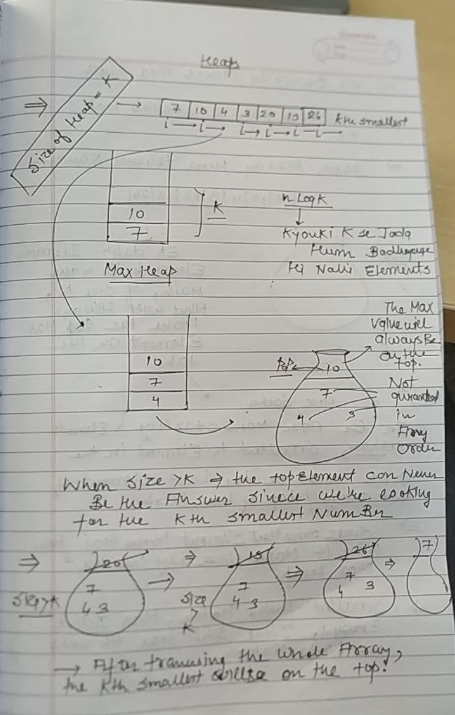 Heap
Size of Heap = K
⇒ → 7 10 4 3 20 15 26 kth smallest
i i i i i i
10
7
K
n Log K
Kyouki K se Jada
Hum Badhayege
Hi Nahi Elements
Max Heap
10
7
4
The Max
Value will
always Be
on the
top.
10
7
4 3
Not
in
Any
Order
When Size >K ⇒ the top Element can Never
Be the Answer since we're looking
for the kth smallest Number
⇒ 20 → ⇒ 15 ⇒ 26 ⇒ 7
7 7 7
4 3 4 3 4 3
Size>K Size > K
→ After the whole Array,
the kth smallest on the top.